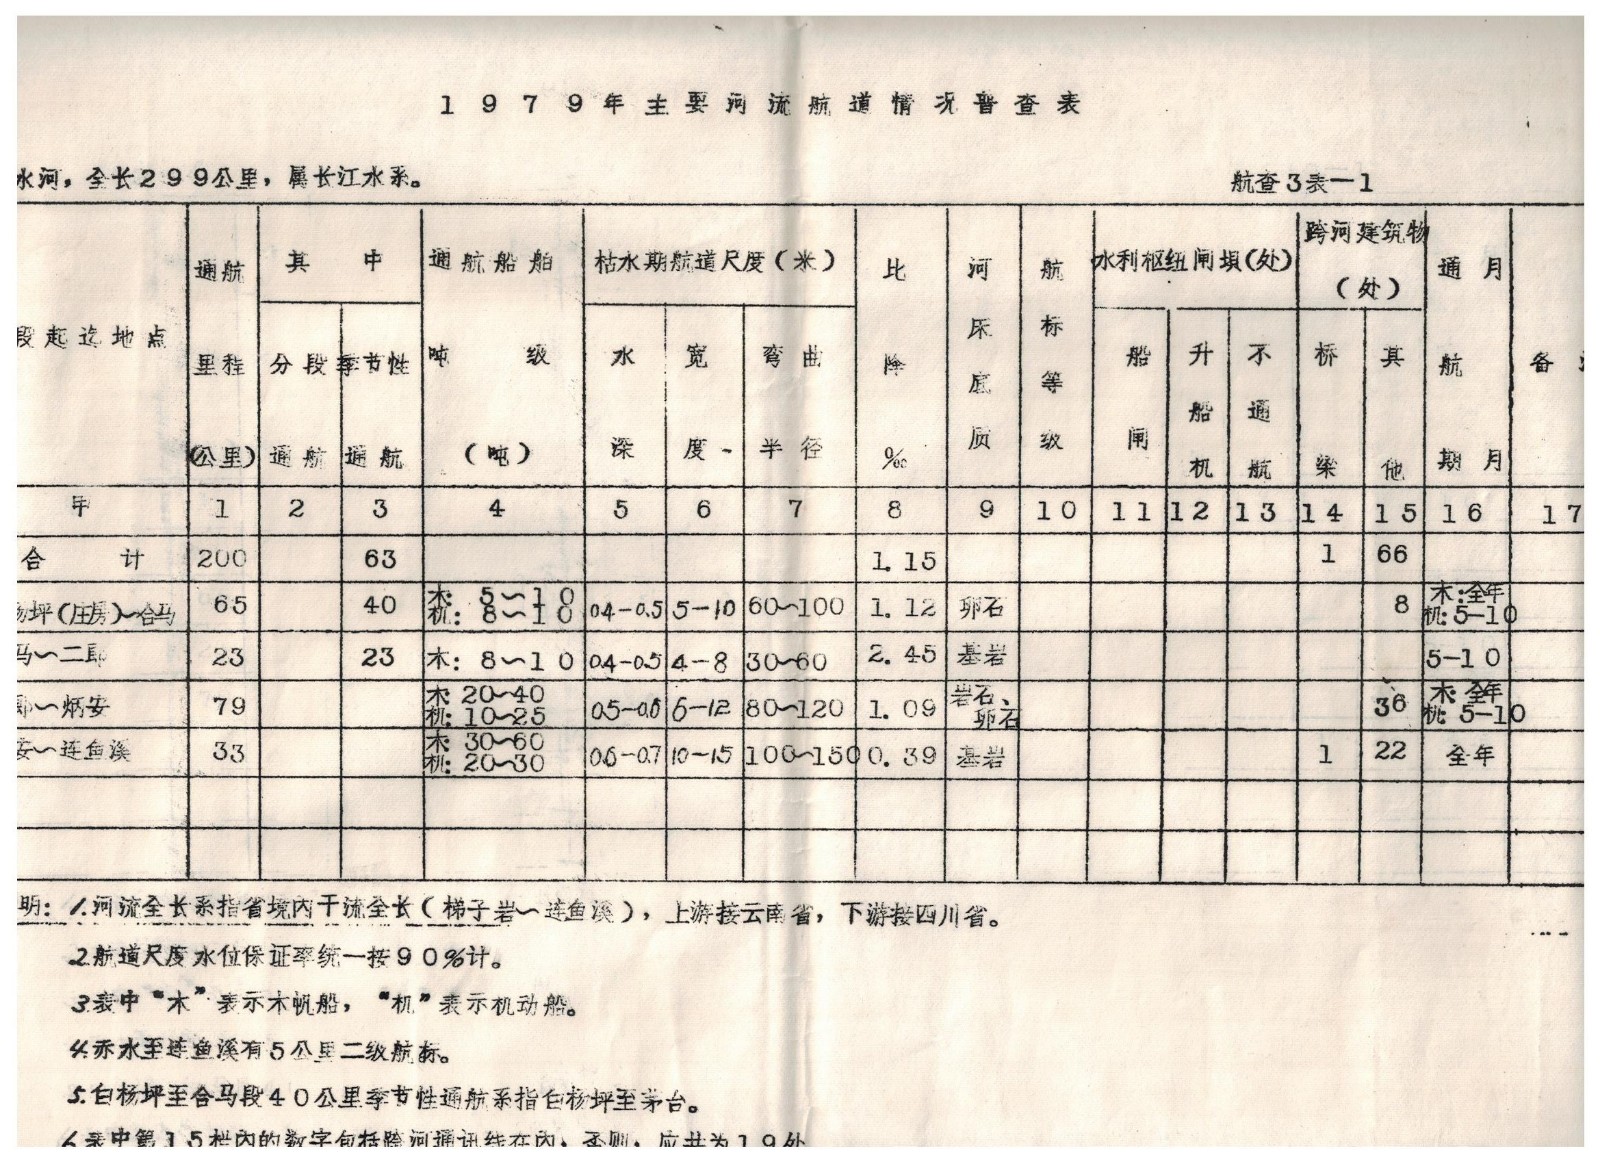 1979年主要河流航道情况普查表
水河，全长299公里，属长江水系。 航查3表—1
段起迄地点 通航里程(公里) 其中 分段通航 季节性通航 通航船舶吨级(吨) 枯水期航道尺度(米) 水深 宽度 弯曲半径 比降‰ 河床底质 航标等级 水利枢纽闸坝(处) 船闸 升船机 不通航 跨河建筑物(处) 桥梁 其他 通航期 月月 备
甲 1 2 3 4 5 6 7 8 9 10 11 12 13 14 15 16 17
合计 200 63 1.15 1 66
杨坪(庄房)～合马 65 40 木: 5～10 机: 8～10 0.4-0.5 5-10 60～100 1.12 卵石 8 木:全年 机:5-10
马～二郎 23 23 木: 8～10 0.4-0.5 4-8 30～60 2.45 基岩 5-10
郎～炳安 79 木: 20～40 机: 10～25 0.5-0.6 6-12 80～120 1.09 岩石、卵石 36 木:全年 机:5-10
安～连鱼溪 33 木: 30～60 机: 20～30 0.6-0.7 10-15 100～150 0.39 基岩 1 22 全年
明: 1.河流全长系指省境内干流全长(梯子岩～连鱼溪)，上游接云南省，下游接四川省。
2.航道尺度水位保证率统一按90%计。
3.表中“木”表示木帆船，“机”表示机动船。
4.赤水至连鱼溪有5公里二级航标。
5.白杨坪至合马段40公里季节性通航系指白杨坪至茅台。
6.表中第15栏内的数字包括跨河通讯线在内，否则，应共为19处